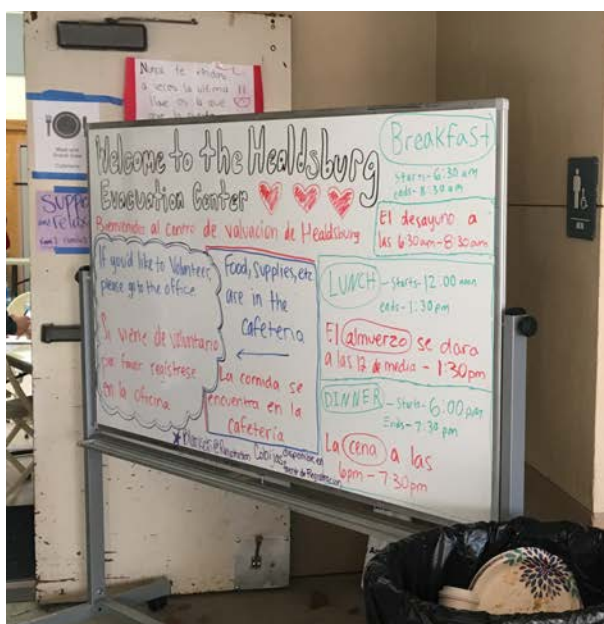 Nunca te rindas,
a veces la última
llave es la que
Meal and
Snack Area
Cafeteria
Welcome to the Healdsburg
Evacuation Center
Bienvenido al centro de valuación de Healdsburg
If you'd like to Volunteer,
please go to the office
Si viene de voluntario
por favor regístrese
en la oficina
Food, supplies, etc
are in the
cafeteria
La comida se
encuentra en la
cafetería
Blankets @ Registration
Cobijas disponible en
Registración
Breakfast
starts - 6:30 am
ends - 8:30 am
El desayuno a
las 6:30am - 8:30am
LUNCH - starts - 12:00
ends - 1:30 pm
El almuerzo se dara
a las 12 de media - 1:30pm
DINNER - Starts - 6:00 pm
Ends - 7:30 pm
La cena a las
6pm - 7:30 pm